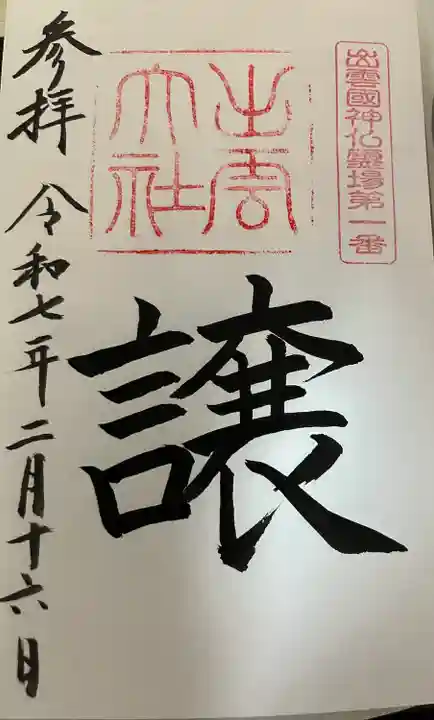 出雲國神仏霊場第一番
出雲
大社
譲
参拝 令和七年二月十六日